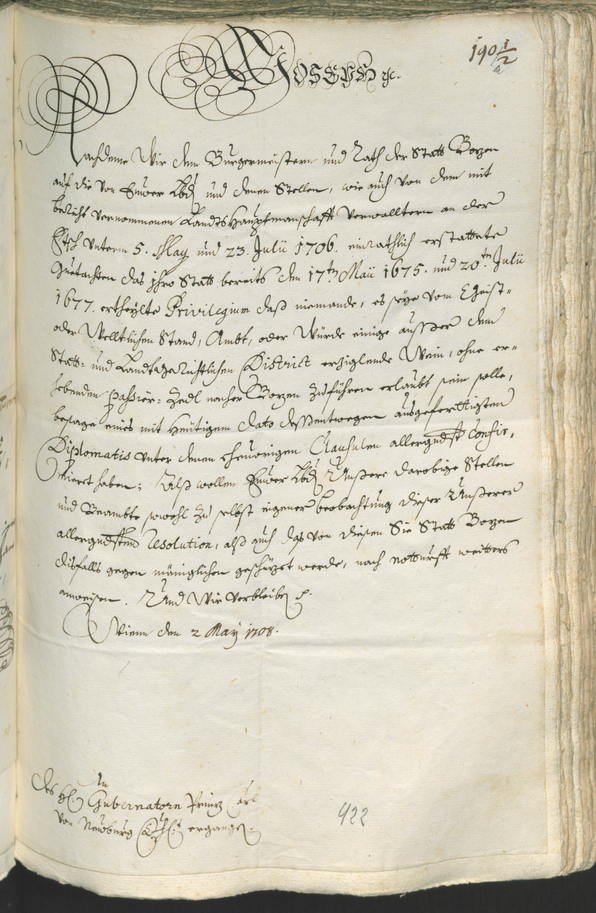 190 1/2
a
JOSEPH etc.
Nachdeme Wir dem Burgermaistern und Rath der Statt Bozen
auf die von Euwer Lbd und denen Stellen, wie auch von dem mit
bericht vernommenen Landts Haubtmanschafft Verwalltern an der
Etsch unterm 5. May und 23. Julii 1706. einräthlich erstattete
Guetachten das ihro Statt bereits den 17ten Maii 1675. und 20ten Julii
1677. ertheilte Privilegium daß niemande, es seye vom Geist-
oder Welltlichen Stand, Ambt, oder Würde einige ausser dem
Statt- und Landtgerichtlichen District erziglende Wein, ohne er-
hebenden passier-Zedl nacher Bozen zuführen erlaubt sein solle,
besage eines mit heütigem dato dessentwegen ausgeferttigten
Diplomatis unter denen vheurigen Clausulen allergndst confir-
miert haben; Allß wollen Euwer Lbd Unsere darobige Stellen
und Beambte sowohl zu selbst eigener beobachtung dieser Unserer
allergnedigsten Resolution, alß auch das von diesen Sie Statt Bozen
dißfalls gegen mäniglichen geschüzet werde, nach notturfft weitters
anweisen. Und Wir verbleiben etc.
Wienn den 2 May 1708.
An
des H: Gubernatorn Prinz Carl
von Neuburg ergangen.
422